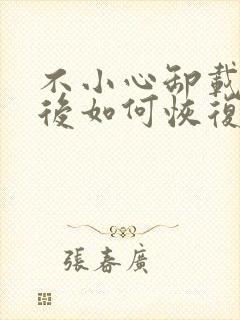 不小心卸載
後如何恢復
張春廣